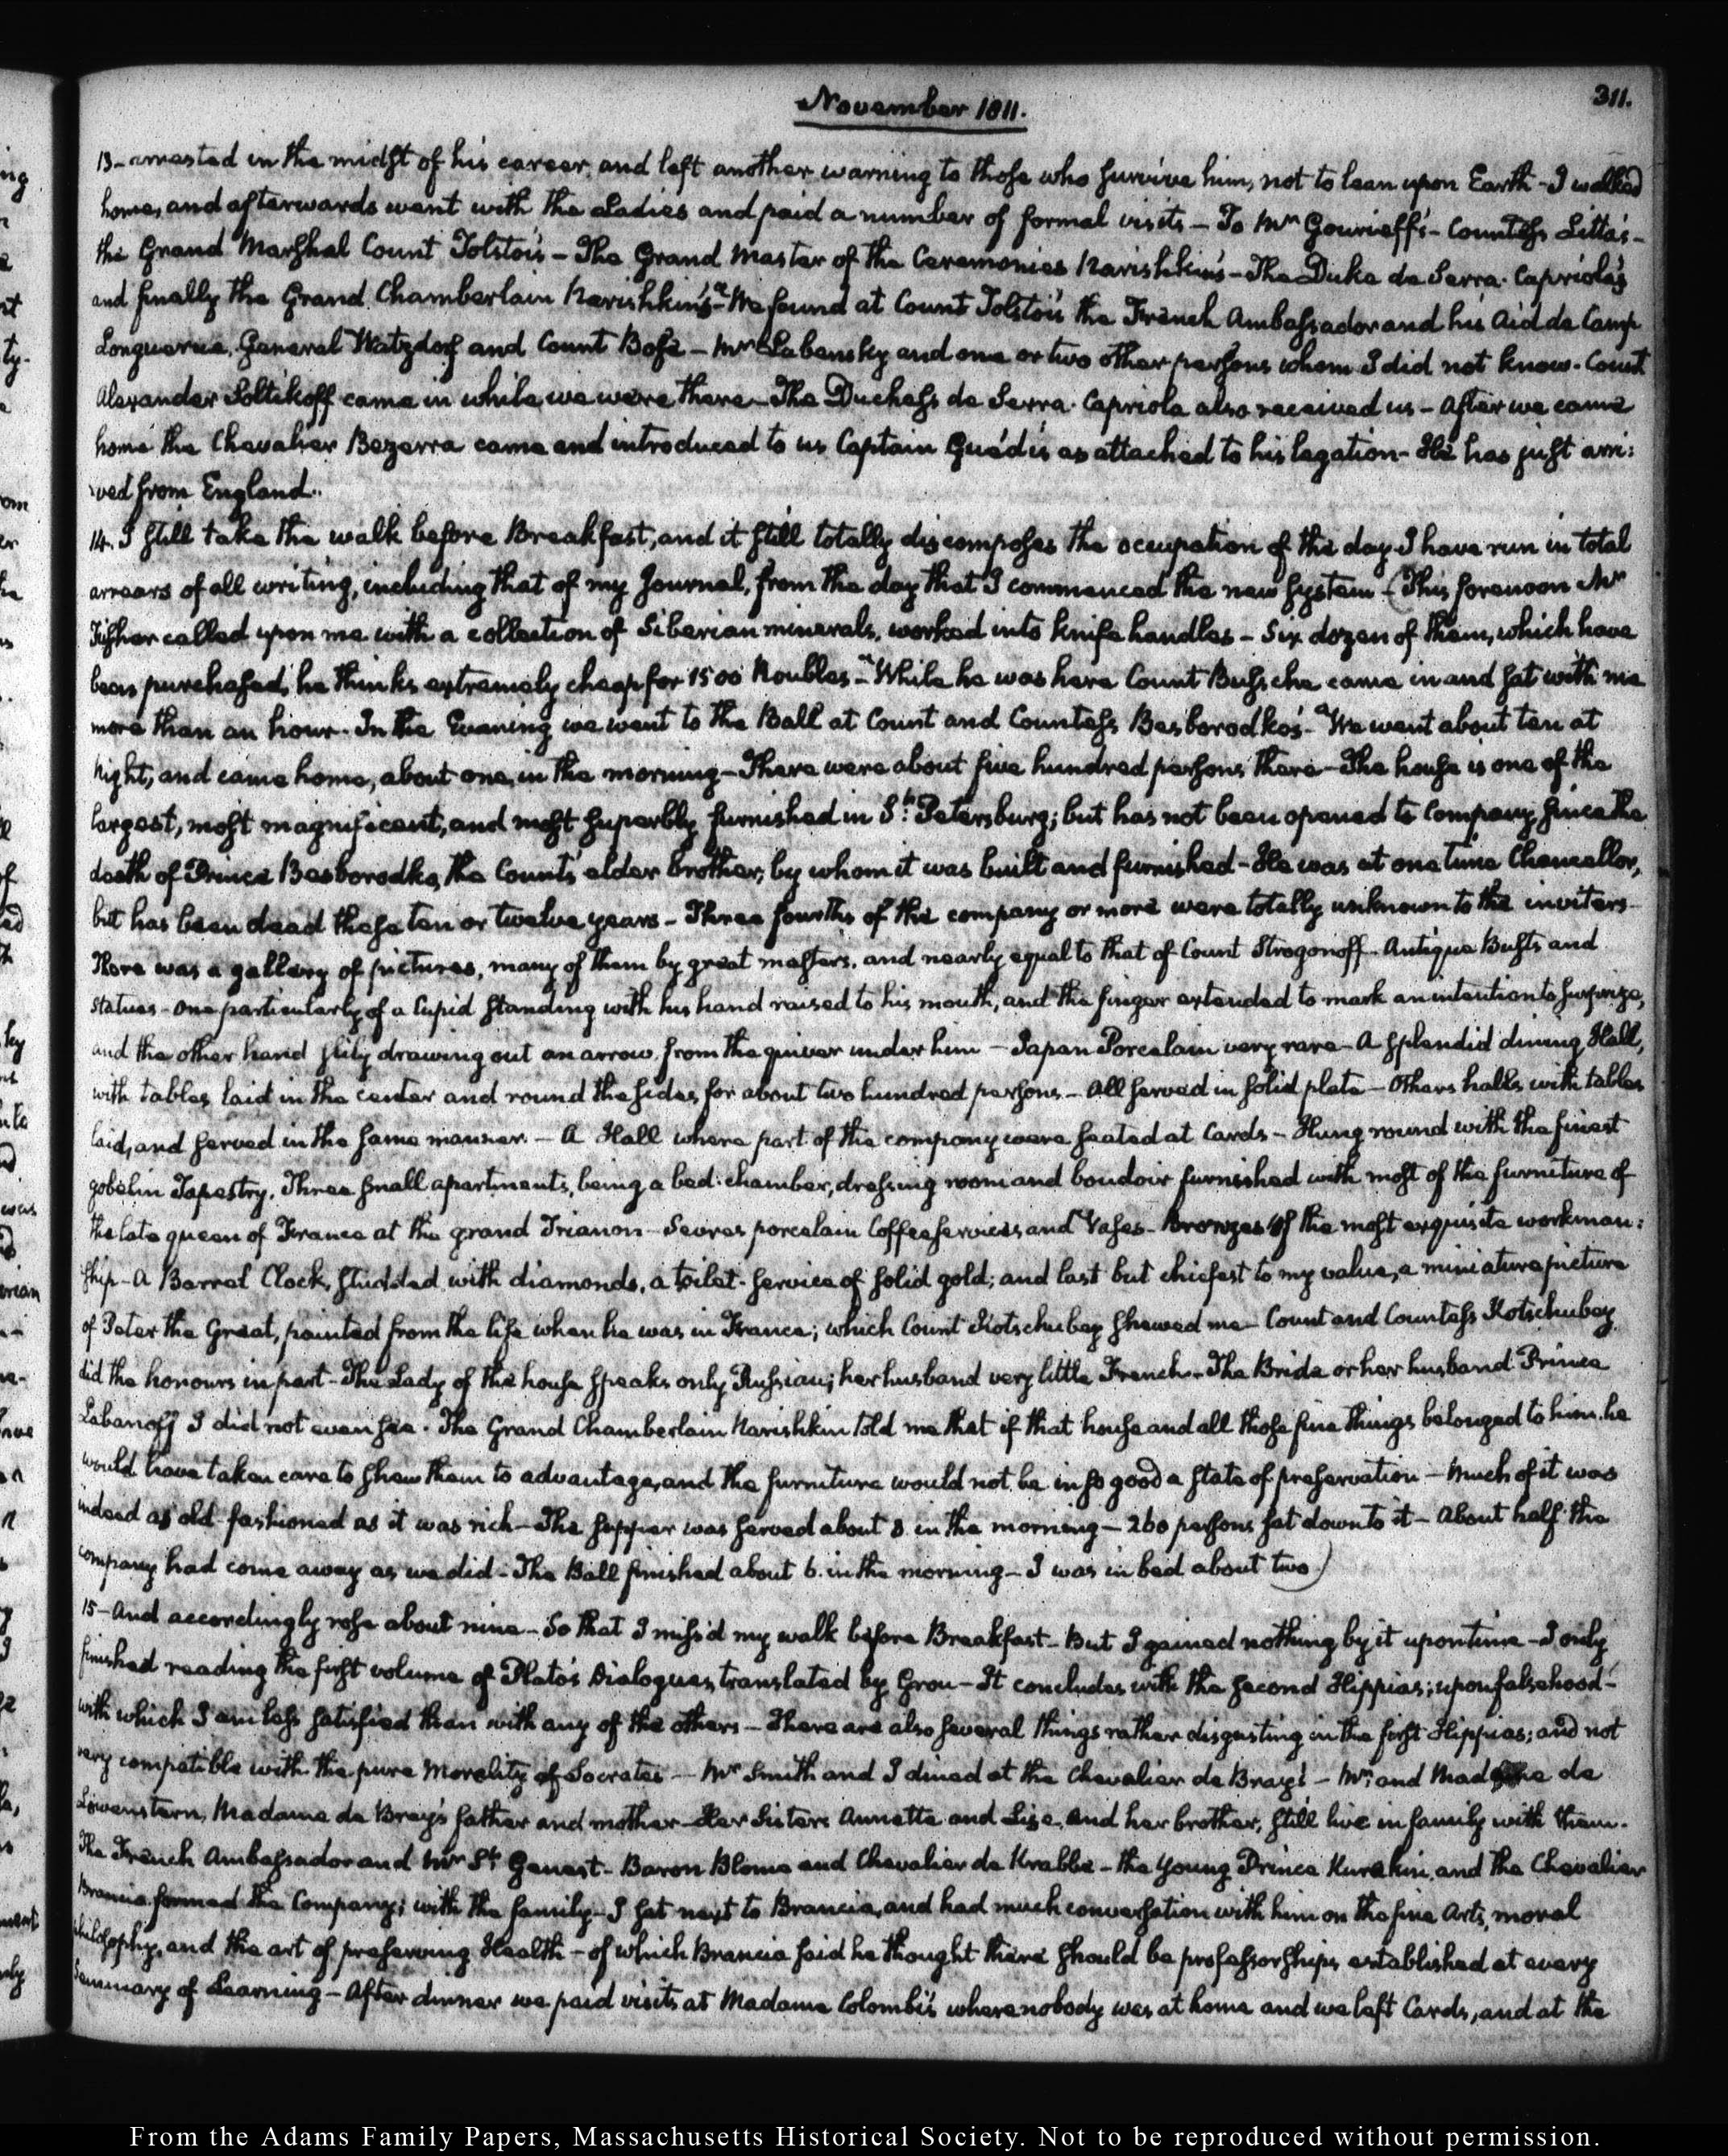 November 1811.
311.
13- arrested in the midst of his career, and left another warning to those who survive him, not to lean upon Earth - I walked
home, and afterwards went with the Ladies and paid a number of formal visits - To Mr Gourieff's - Countess Litta's -
the Grand Marshal Count Tolstoi's - The Grand Master of the Ceremonies Narishkin's - The Duke de Serra-Capriola's
and finally the Grand Chamberlain Narishkin's - We found at Count Tolstoi's the French Ambassador and his Aid de Camp
Longuerue, General Watzdorf and Count Bose - Mr Labensky and one or two other persons whom I did not know. Count
Alexander Soltikoff came in while we were there - The Duchess de Serra-Capriola also received us - After we came
home the Chevalier Bezerra came and introduced to us Captain Guédis as attached to his legation - He has just arri:
ved from England.
14. I still take the walk before Breakfast, and it still totally discomposes the occupation of the day I have run in total
arrears of all writing, including that of my Journal, from the day that I commenced the new system - (This forenoon Mr
Fisher called upon me with a collection of Siberian minerals, worked into knife handles - Six dozen of them, which have
been purchased, he thinks extremely cheap for 1500 Roubles - While he was here Count Bussche came in and sat with me
more than an hour. In the Evening we went to the Ball at Count and Countess Besborodko's - We went about ten at
Night, and came home, about one, in the morning - There were about five hundred persons there - The house is one of the
largest, most magnificent, and most superbly furnished in St. Petersburg; but has not been opened to Company, since the
death of Prince Besborodko, the Count's elder brother, by whom it was built and furnished - He was at one time Chancellor,
but has been dead these ten or twelve years - Three fourths of the company or more were totally unknown to the inviters -
There was a gallery of pictures, many of them by great masters, and nearly equal to that of Count Strogonoff - Antique Busts and
Statues - One particularly of a Cupid standing with his hand raised to his mouth, and the finger extended to mark an intention to surprize,
and the other hand slily drawing out an arrow from the quiver under him - Japan Porcelain very rare - A splendid dining Hall,
with tables laid in the center and round the sides, for about two hundred persons - All served in solid plate - Others halls with tables
laid, and served in the same manner - A Hall where part of the company were seated at Cards - Hung round with the finest
gobelin Tapestry. Three small apartments, being a bed-chamber, dressing room and boudoir furnished with most of the furniture of
the late queen of France at the grand Trianon - Sevres porcelain Coffee services and Vases - Bronzes of the most exquisite workman:
ship - A Barrel Clock, studded with diamonds, a toilet-service of solid gold; and last but chiefest to my value, a miniature picture
of Peter the Great, painted from the life when he was in France; which Count Kotschubey shewed me - Count and Countess Kotschubey
did the honours in part - The Lady of the house speaks only Russian; her husband very little French - The Bride or her husband Prince
Labanoff I did not even see. The Grand Chamberlain Narishkin told me that if that house and all those fine things belonged to him, he
would have taken care to shew them to advantage, and the furniture would not be in so good a state of preservation - Much of it was
indeed as old-fashioned as it was rich - The supper was served about 3 in the morning - 260 persons sat down to it - About half the
company had come away as we did - The Ball finished about 6. in the morning - I was in bed about two.)
15 - And accordingly rose about nine - So that I miss'd my walk before Breakfast - But I gained nothing by it upon time - I only
finished reading the first volume of Plato's Dialogues, translated by Grou - It concludes with the second Hippias; upon falsehood -
with which I am less satisfied than with any of the others - There are also several things rather disgusting in the first Hippias; and not
very compatible with the pure Morality of Socrates - Mr Smith and I dined at the Chevalier de Bray's - Mr. and Madame de
Löwenstern, Madame de Bray's father and mother - Her Sisters Annette and Lise, and her brother, still live in family with them.
The French Ambassador and Mr St. Genest - Baron Blome and Chevalier de Krabbe - the Young Prince Kurakin, and the Chevalier
Brancia formed the Company; with the family - I sat next to Brancia, and had much conversation with him on the fine Arts, moral
philosophy, and the art of preserving Health - of which Brancia said he thought there should be professorships established at every
Seminary of Learning - After dinner we paid visits at Madame Colombi's where nobody was at home and we left Cards, and at the
From the Adams Family Papers, Massachusetts Historical Society. Not to be reproduced without permission.